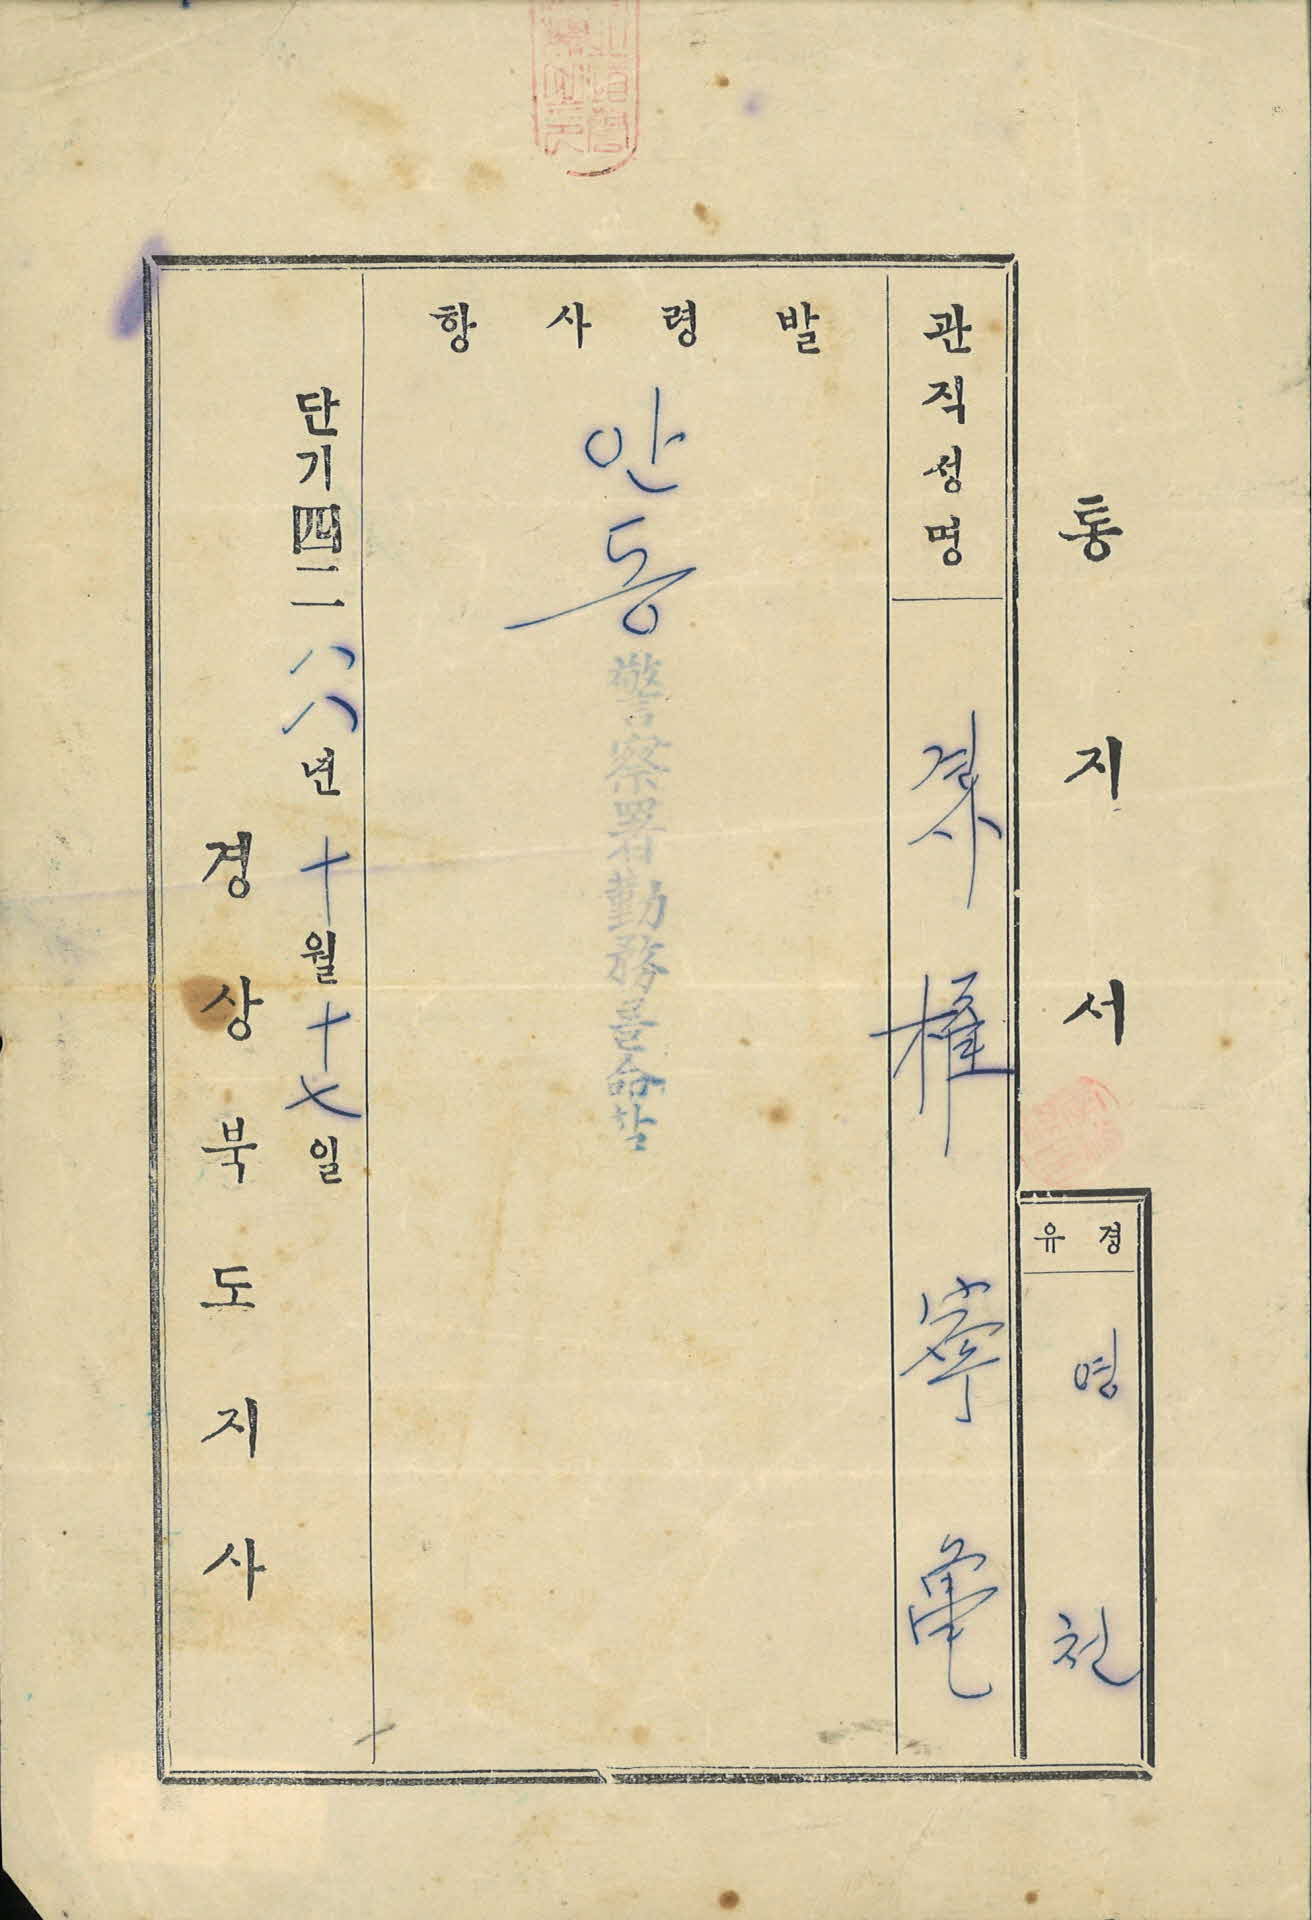 통지서
경유
영천
관직성명
경사 權寧龜
발령사항
안동警察署勤務를命함
단기四二八八년十월十七일
경상북도지사